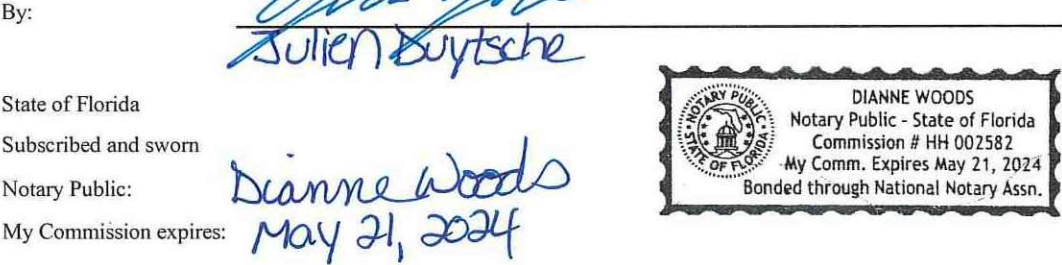 By:
Julien Duytsche
State of Florida
Subscribed and sworn
Notary Public: Dianne Woods
My Commission expires: May 21, 2024
NOTARY PUBLIC
STATE OF FLORIDA
DIANNE WOODS
Notary Public - State of Florida
Commission # HH 002582
My Comm. Expires May 21, 2024
Bonded through National Notary Assn.